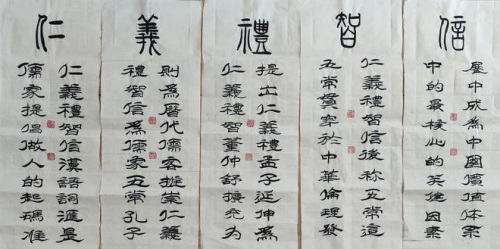 仁
仁義禮智信漢語詞滙是
儒家提倡做人的起碼准
義
則為曆代儒客推崇仁義
禮智信為儒家五常孔子
禮
提出仁義禮孟子延伸為
仁義禮智董仲舒擴充为
智
仁義禮智信後称五常這
五常貫穿於中華倫理發
信
展中成為中國價值体系
中的最核心的关健因素